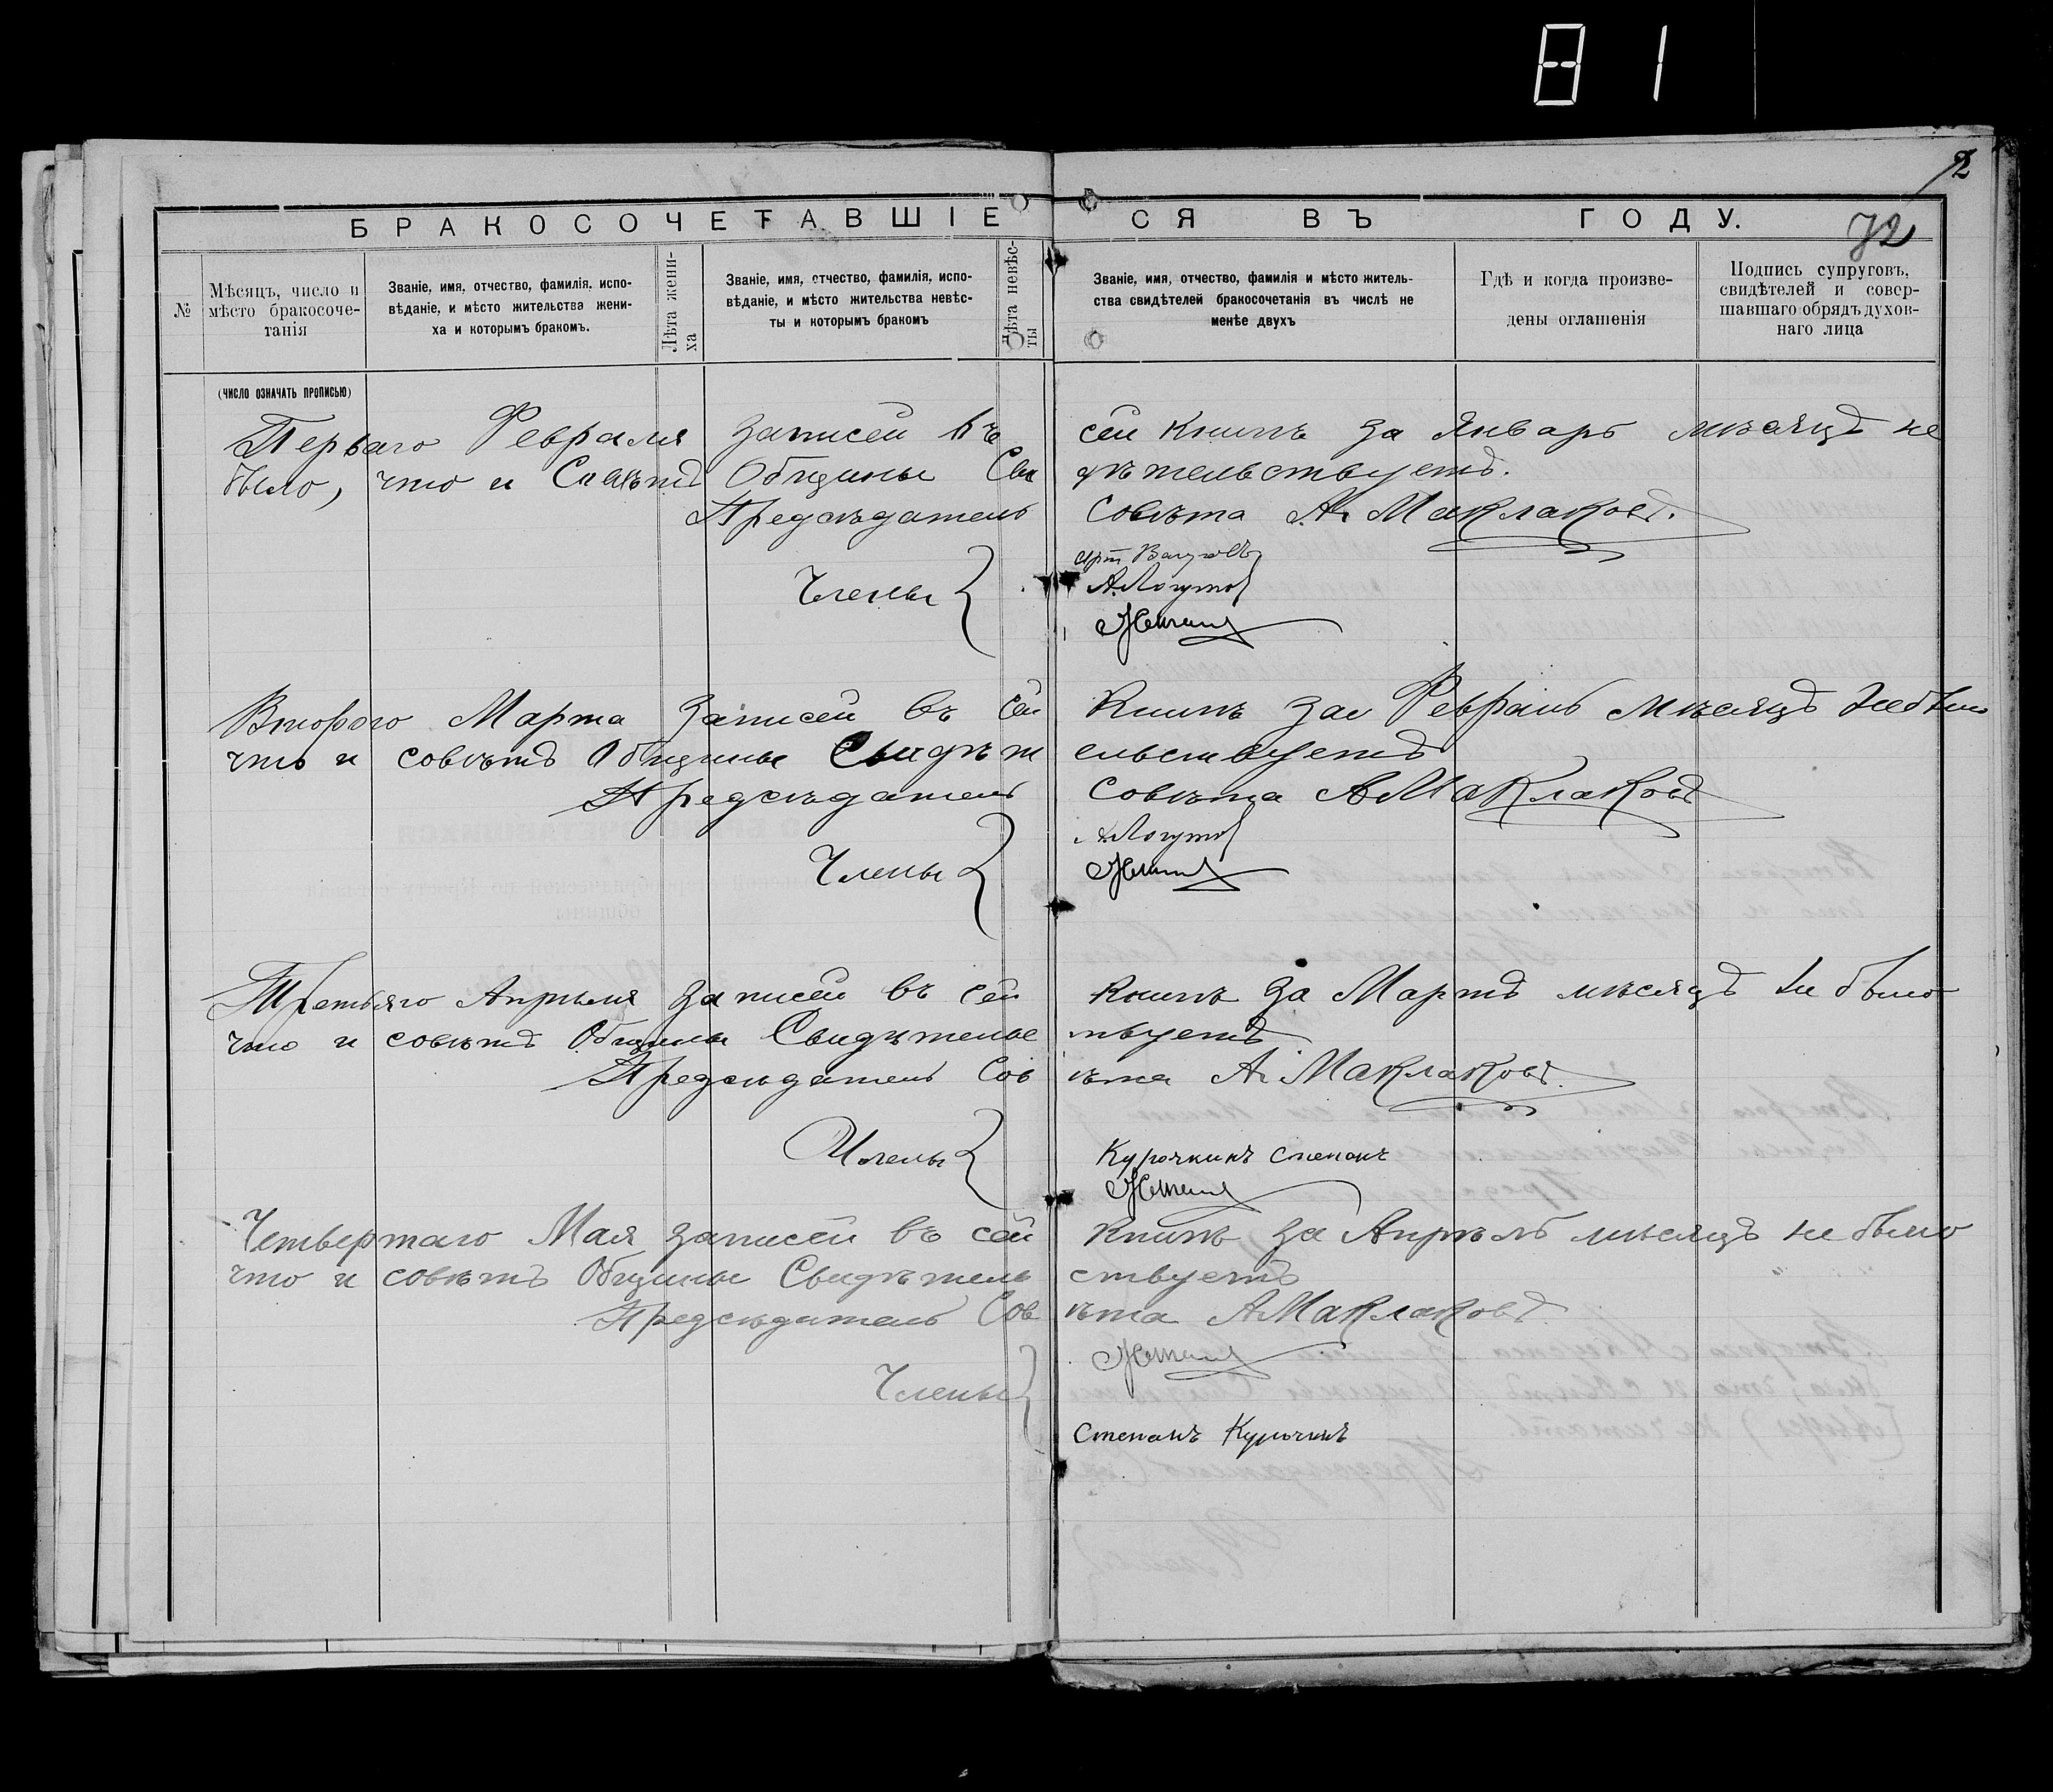 81
2
72
БРАКОСОЧЕТАВШІЕСЯ ВЪ ГОДУ.
№
Мѣсяцъ, число и
мѣсто бракосоче-
танія
Званіе, имя, отчество, фамилія, испо-
вѣданіе, и мѣсто жительства жени-
ха и которымъ бракомъ.
Лѣта жени-
ха
Званіе, имя, отчество, фамилія, испо-
вѣданіе, и мѣсто жительства невѣс-
ты и которымъ бракомъ
Лѣта невѣс-
ты
Званіе, имя, отчество, фамилія и мѣсто житель-
ства свидѣтелей бракосочетанія въ числѣ не
менѣе двухъ
Гдѣ и когда произве-
дены оглашенія
Подпись супруговъ,
свидѣтелей и совер-
шавшаго обрядъ духов-
наго лица
(число означать прописью)
Перваго Февраля записей въ сей книгѣ за Январь мѣсяцъ не
было, что и Совѣтъ Общины Сви дѣтельствуетъ.
Предсѣдатель Совѣта А. Маклаковъ.
Члены
А. Логутов
Втораго Марта записей въ сей Книгѣ за Февраль мѣсяцъ не было
что и совѣтъ Общины Свидѣт ельствуетъ
Предсѣдатель Совѣта А Маклаковъ
Члены
А. Логутов
Третьяго Апрѣля записей въ сей Книгѣ за Мартъ мѣсяцъ не было
что и совѣтъ Общины Свидѣтельс твуетъ
Предсѣдатель Сов ѣта А. Маклаковъ.
Члены
Курочкинъ Степанъ
Четвертаго Мая записей въ сей Книгѣ за Апрѣль мѣсяцъ не было
что и совѣтъ Общины Свидѣтель ствуетъ
Предсѣдатель Сов ѣта А Маклаковъ.
Члены
Степанъ Курочкинъ